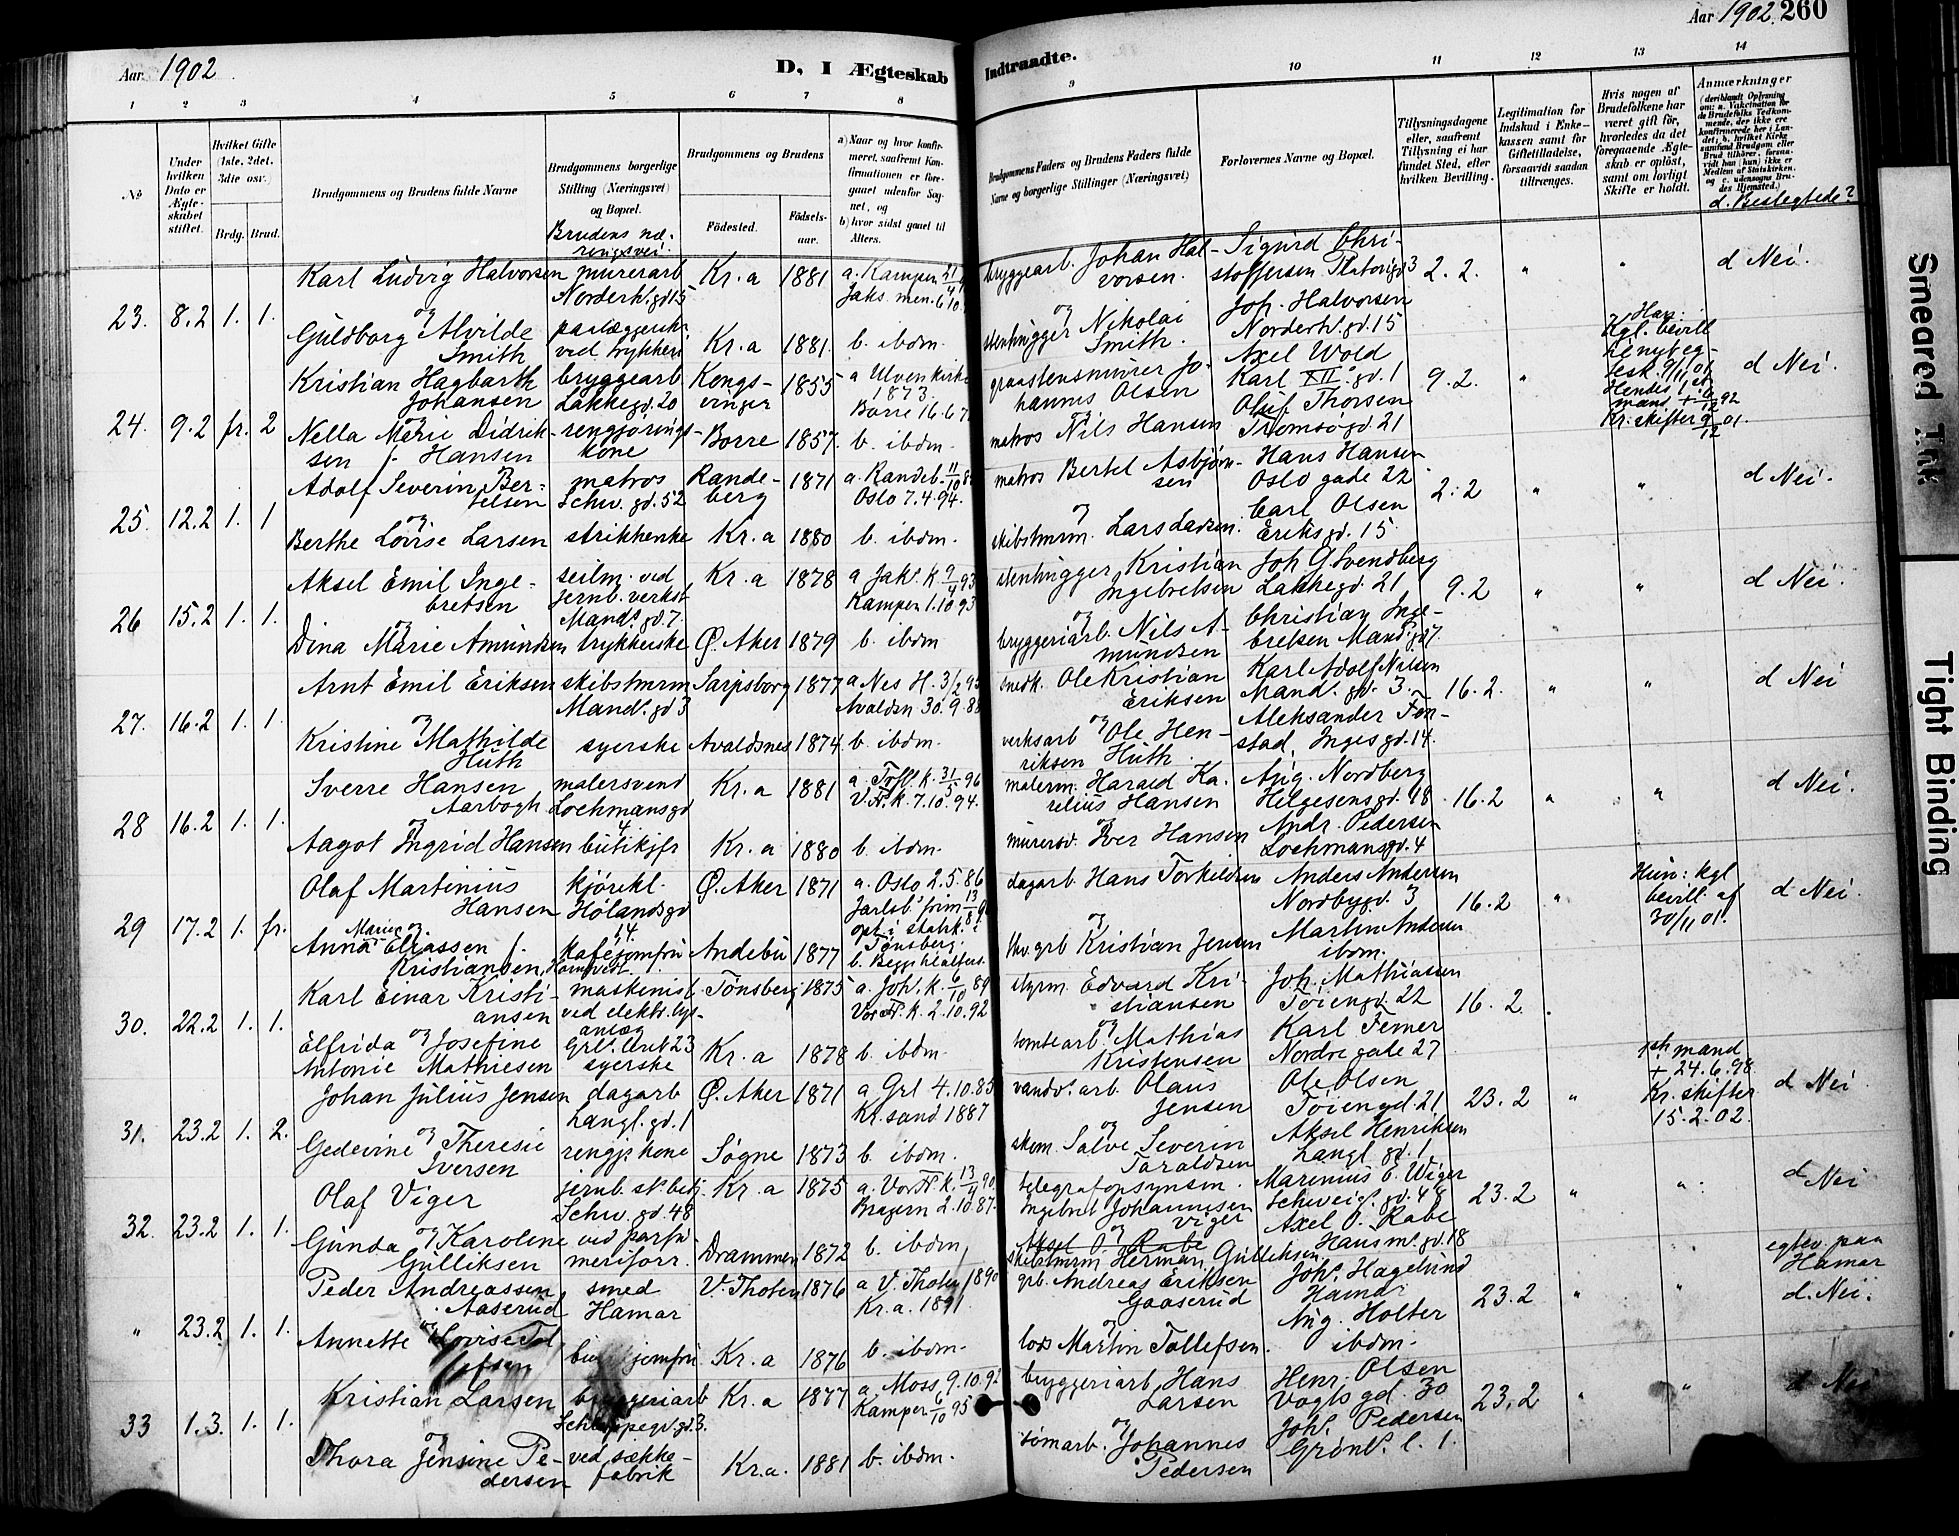 Aar 1902
D, I Ægteskab
Indtraadte.
Aar 1902. 260
1 2 3 4 5 6 7 8 9 10 11 12 13 14
No
Under hvilken Dato er Ægteskabet stiftet.
Hvilket Gifte (1ste, 2det, 3die osv.)
Brdg. Brud.
Brudgommens og Brudens fulde Navne
Brudgommens borgerlige Stilling (Næringsvei) og Bopæl.
Brudens næringsvei.
Brudgommens og Brudens
Födested. Födselsaar.
a) Naar og hvor konfirmeret, saafremt Konfirmationen er foregaaet udenfor Sognet, og
b) hvor sidst gaaet til Alters.
Brudgommens Faders og Brudens Faders fulde Navne og borgerlige Stillinger (Næringsvei)
Forlovernes Navne og Bopæl.
Tillysningsdagene eller, saafremt Tillysning ei har fundet Sted, efter hvilken Bevilling.
Legitimation for Indskud i Enkekassen samt for Giftetilladelse, forsaavidt saadan tiltrænges.
Hvis nogen af Brudefolkene har været gift för, hvorledes da det foregaaende Ægteskab er oplöst, samt om lovligt Skifte er holdt.
Anmærkninger
(deriblandt Oplysning om: a. Vakcination for de Brudefolks Vedkommende, der ikke ere konfirmerede her i Landet, b. hvilket Kirkesamfund Brudgom eller Brud tilhörer, forsaavidt han (hun) ikke er Medlem af Statskirken, og c. udensogns Brudes Hjemsted.)
d. Beslegtede?
23. 8.2 1. 1.
Karl Ludvig Halvorsen murerarb Kr.a 1881 a. Kampen 21/4
Norderh. gd 15 Jaks men. 6/10
og
Guldborg Alvilde Smith papilæggerske ved trykkeri Kr.a 1881. b. ibdm.
bryggearb. Johan Halvorsen. Sigurd Christoffersen Platous gd 3 2.2. " " d Nei.
og
stenhugger Nikolai Smith. Joh. Halvorsen Norderh. gd. 15
24. 9.2 fr. 2
Kristian Hagbarth Johansen bryggearb Lakkegd. 20 Kongsvinger 1855 a Ulven kirke 1873. Borre 16.6.7
Nella Marie Didriksen f. Hansen rengjøringskone Borre 1857. b. ibdm.
graastensmurer Johannes Olsen Axel Wold Karl XII's gd. 1 9.2. " d Nei.
matros Nils Hansen Oluf Thorsen Tromsøgd. 21
Han: Kgl. bevill til nyt egtesk. 9/11 01.
Hendes 1ste mand + 6/12 92
Kr. skifter 9/12 01.
25. 12.2 1. 1
Adolf Severin Bertelsen matros Schw. gd. 52 Randeberg 1871 a. Randeb. 11/10 8 Oslo 7.4.94.
og
Berthe Lovise Larsen strikkerske Kr.a 1880 b. ibdm.
matros Bertel Asbjørnsen Hans Hansen Oslo gade 22 2.2 " " d Nei.
og
skibstmrm. Lars Larsen. Carl Olsen Eriks gd. 15
26 15.2 1. 1.
Aksel Emil Ingebretsen seilm. ved jernb. verkst Mands. gd. 7. Kr.a 1878 a Jak. K 9/4 93 Kampen 1.10 93
og
Dina Marie Amundsen trykkerske Ø. Aker 1879 b. ibdm
stenhugger Kristian Ingebretsen Joh G. Svendberg Lakkegd. 21 9.2 " " d Nei.
og
bryggeriarb. Nils Amundsen Christian Ingebretsen Mands. gd 7
27. 16.2 1. 1.
Arnt Emil Eriksen skibstmrm Mands. gd 3 Sarpsborg 1877 a Nes H. 3/2 95 Avaldsn 30.9.88
og
Kristine Mathilde Huth syerske Avaldsnes 1874 b. ibdm.
snedk. Ole Kristian Eriksen Karl Adolf Nilsen Mands. gd. 3. 16.2. " " d Nei
og
verksarb Ole Henriksen Huth Aleksander Tonstad, Inges gd. 14.
28 16.2 1. 1.
Sverre Hansen Aarbogh malersvend Lochmansgd 4 Kr.a 1881 a. Trfl. K. 31/5 96 V.F. k. 7.10.94.
og
Aagot Ingrid Hansen butikjfr Kr.a 1880 b. ibdm.
malerm. Harald Karelius Hansen Aug. Nordberg Helgesensgd. 18. 16.2 " " d Nei.
og
murersv. Iver Hansen Andr. Pedersen Lochmansgd. 4
29 17.2 1. fr.
Olaf Martinius Hansen kjørekl. Hølandsgd 14. Ø. Aker 1871 a. Oslo 2.5.86
og
Anna Marie Eliassen f. Kristiansen, kafejomfru Andebu 1877 Jarlsb. frim 13/8 opt. i statsk. i Tønsberg.
dagarb. Hans Torkildsen Anders Andersen Nordbygd. 3 16.2 " d Nei.
og
hv. grb Kristian Jensen Martin Andersen ibdm.
Hun: kgl bevill. af 30/11 01.
30. 22.2 1. 1.
Karl Einar Kristiansen maskinist ved elektr. lysanlæg Grl. Unt 23 Tønsberg 1875 a. Joh. k. 6/10 89 Vor F. k. 2.10.92
og
Elfrida Josefine Antonie Mathiesen syerske Kr.a 1878 b. ibdm.
styrm. Edvard Kristiansen Joh. Mathiassen Tøiengd. 22 16.2.
og
tomtearb. Mathias Kristensen Karl Temer Nordre gade 27
31. 23.2 1. 2.
Johan Julius Jensen dagarb Langl. gd. 1 Ø. Aker 1871 a Grl 4.10.85 Kr.sand 1887
og
Gedevine Theresie Iversen rengj. kone Søgne 1873 b. ibdm.
vandv. arb. Olaus Jensen Ole Olsen Tøiengd. 21 23.2 " d Nei
og
skom. Salve Severin Taraldsen Aksel Henriksen Langl. gd. 1
1ste mand + 24.6.98 Kr. skifter 15.2.02.
32. 23.2 1. 1.
Olaf Viger jernb. st. betj. Schw. gd. 48 Kr.a 1875 a. Vor F. k. 13/4 90 Bragern 2.10.87.
og
Gunda Karoline Gulliksen ved parfumeriforr. Drammen 1872 b. ibdm.
telegrafopsynsm. Ingebret Johannesen Viger Marenius E. Wiger Schweigs. gd. 48 23.2 " " d Nei
og
Aksel O. Rabe
skibstmrm Herman Gulliksen Axel O. Rabe Hansm. gd. 18
" 23.2 1. 1.
Peder Andreassen Aaserud smed Hamar V. Thoten 1876 a V. Thoten 1890 Kr.a. 1891.
og
Annette Lovise Tollefsen Kr.a 1876 b. ibdm.
grb. Andreas Eriksen Gaaserud Joh. Hagelund Hamar 23.2 " " egtev. paa Hamar d. Nei.
og
lods Martin Tollefsen. Aug. Holter ibdm.
33 1.3. 1. 1.
Kristian Larsen bryggeriarb Kr.a 1877 a. Moss 9.10.92 Kampen 6/10 95
og
Thora Jensine Pedersen ved sækkefabrik Kr.a. 1881 b. ibdm.
bryggeriarb Hans Larsen Henr. Olsen Vogts gd. 30 23.2 " " d Nei
og
tømarb. Johannes Pedersen Joh. Pedersen Grønl. l. 1.
Smeared Ink
Tight Binding